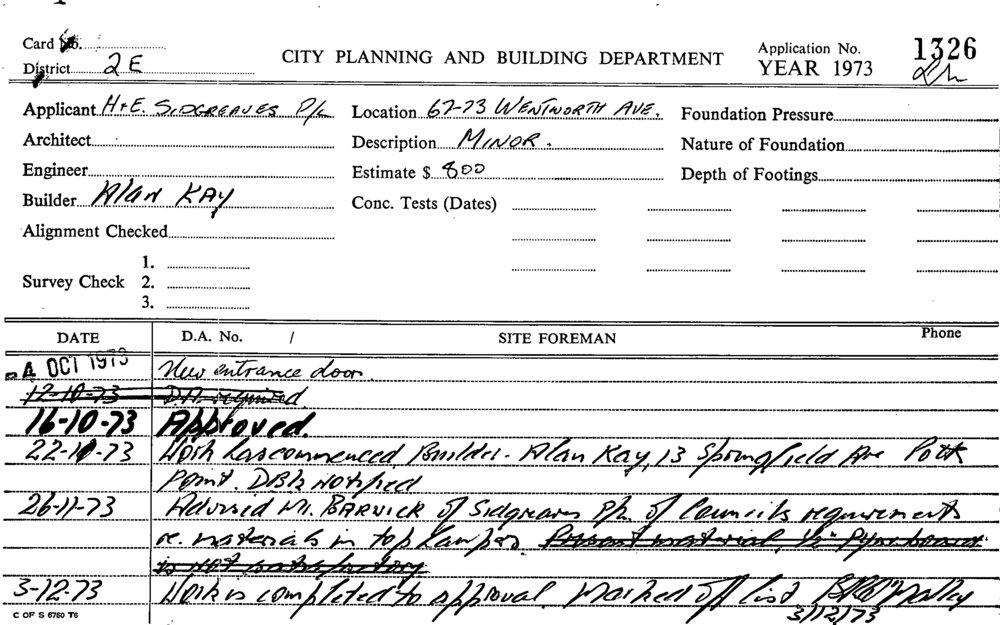 Card No.
District 2E
CITY PLANNING AND BUILDING DEPARTMENT
Application No. 1326
YEAR 1973
Applicant H+E. SIDGREAVES P/L
Location 67-73 WENTWORTH AVE.
Foundation Pressure
Architect
Description MINOR.
Nature of Foundation
Engineer
Estimate $ 800
Depth of Footings
Builder Alan KAY
Conc. Tests (Dates)
Alignment Checked
1.
Survey Check 2.
3.
DATE D.A. No. / SITE FOREMAN Phone
4 OCT 1973 New entrance door.
12-10-73 D.A. required.
16-10-73 Approved.
22-10-73 Work has commenced. Builder - Alan Kay, 13 Springfield Ave Potts
Point. DBLR Notified
26-11-73 Advised Mr. BARVICK of Sidgreaves P/L. of Councils requirements
re. materials in top Present material,
is not satisfactory
3-12-73 Work is completed to approval. Marked off list
3/12/73
C OF S 6760 T6